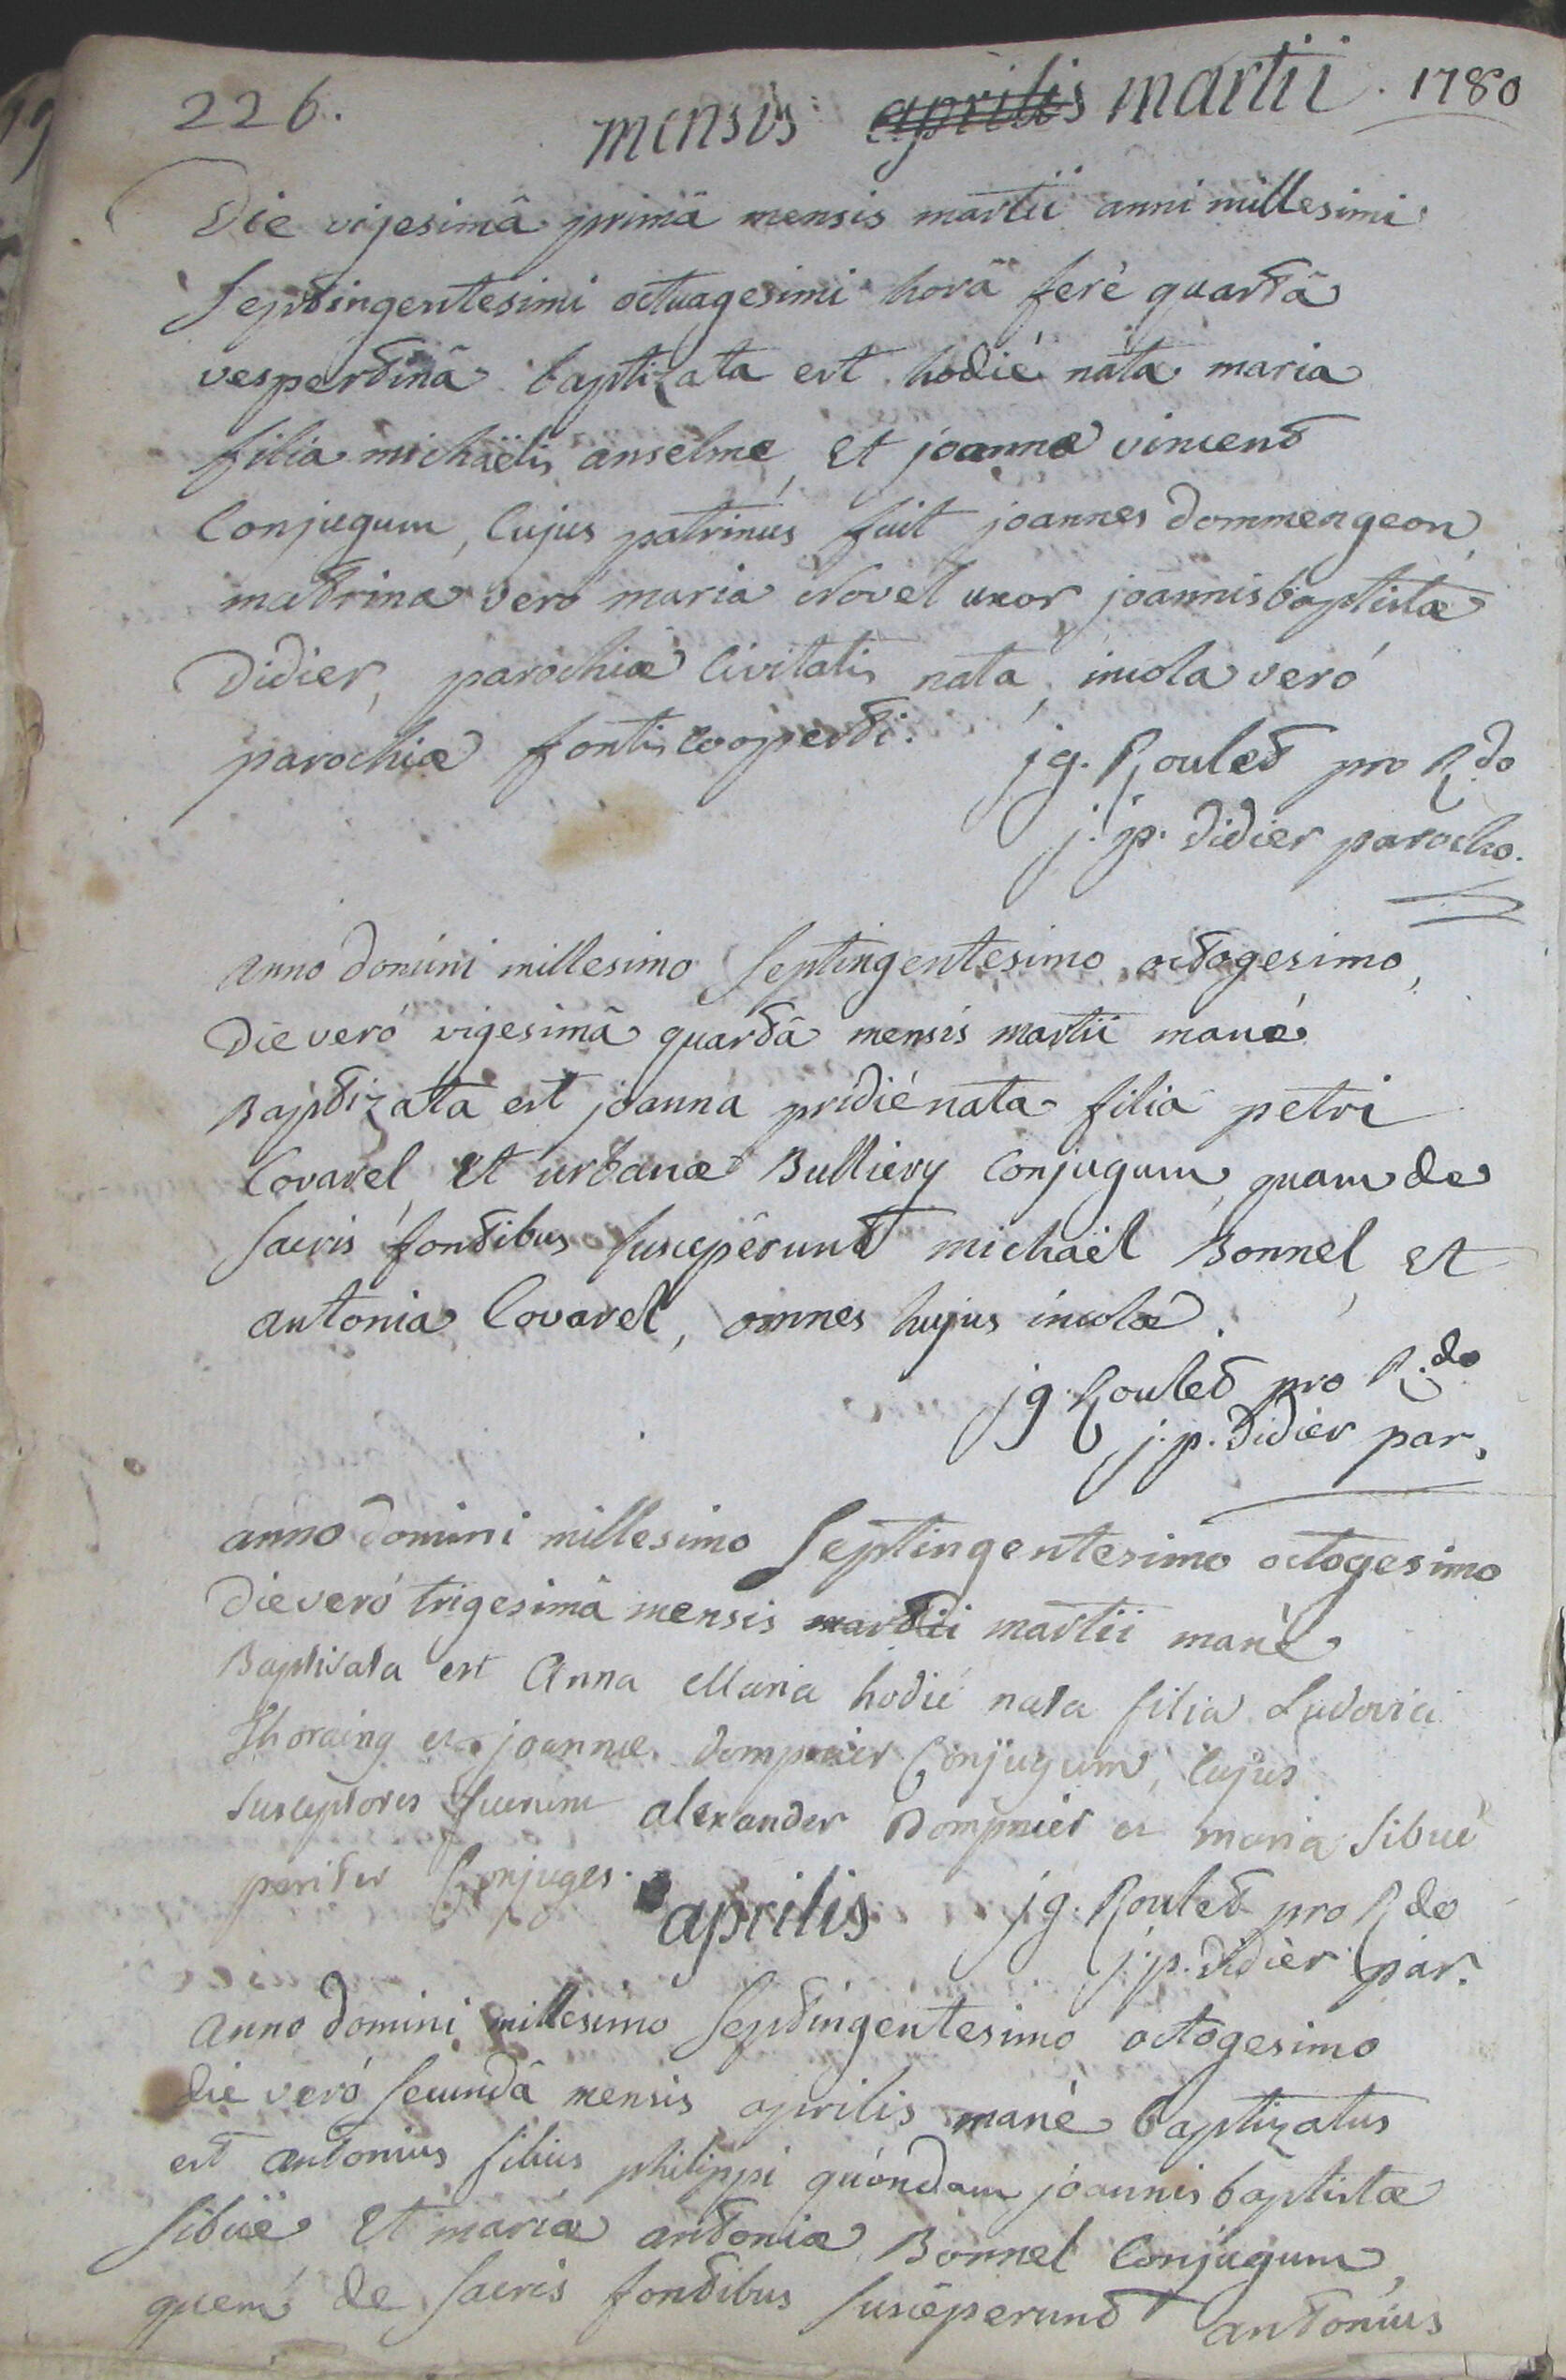 226.
mensis aprilis martii . 1780
Die vigesimâ primâ mensis martii anni millesimi
septingentesimi octuagesimi horâ ferè quartâ
vespertinâ baptizata est hodié nata maria
filia michaëlis anselme, et joannæ vincent
Conjugum, Cujus patrinus fuit joannes dommengeon,
matrina veró maria Novel uxor joannis baptistæ
Didier, parochiæ Civitatis nata, incola veró
parochiæ fontiscooperti.
jg. Roulet pro R.do
j. p. didier parocho.
anno domini millesimo septingentesimo octogesimo,
Die veró vigesimâ quartâ mensis martii mané
Baptizata est joanna pridié nata filia petri
Covarel, et urbanæ Bulliery Conjugum, quam de
sacris fontibus susceperunt michaël Bonnel, et
antonia Covarel, omnes hujus incolæ.
jg. Roulet pro R.do
j. p. didier par.
anno domini millesimo septingentesimo octogesimo
Die veró trigesimâ mensis martii martii mané
Baptisata est Anna Maria hodié nata filia Ludovici
Thoraing et joannæ dompnier Conjugum, Cujus
susceptores fuerunt alexander Dompnier et maria sibué
pariter Conjuges.
aprilis
jg. Roulet pro R.do
j. p. didier par.
anno domini millesimo septingentesimo octogesimo
die veró secundâ mensis aprilis mané baptizatus
est antonius filius philippi quóndam joannis baptistæ
sibué et mariæ antoniæ Bonnel Conjugum,
quem de sacris fontibus susceperunt antonius